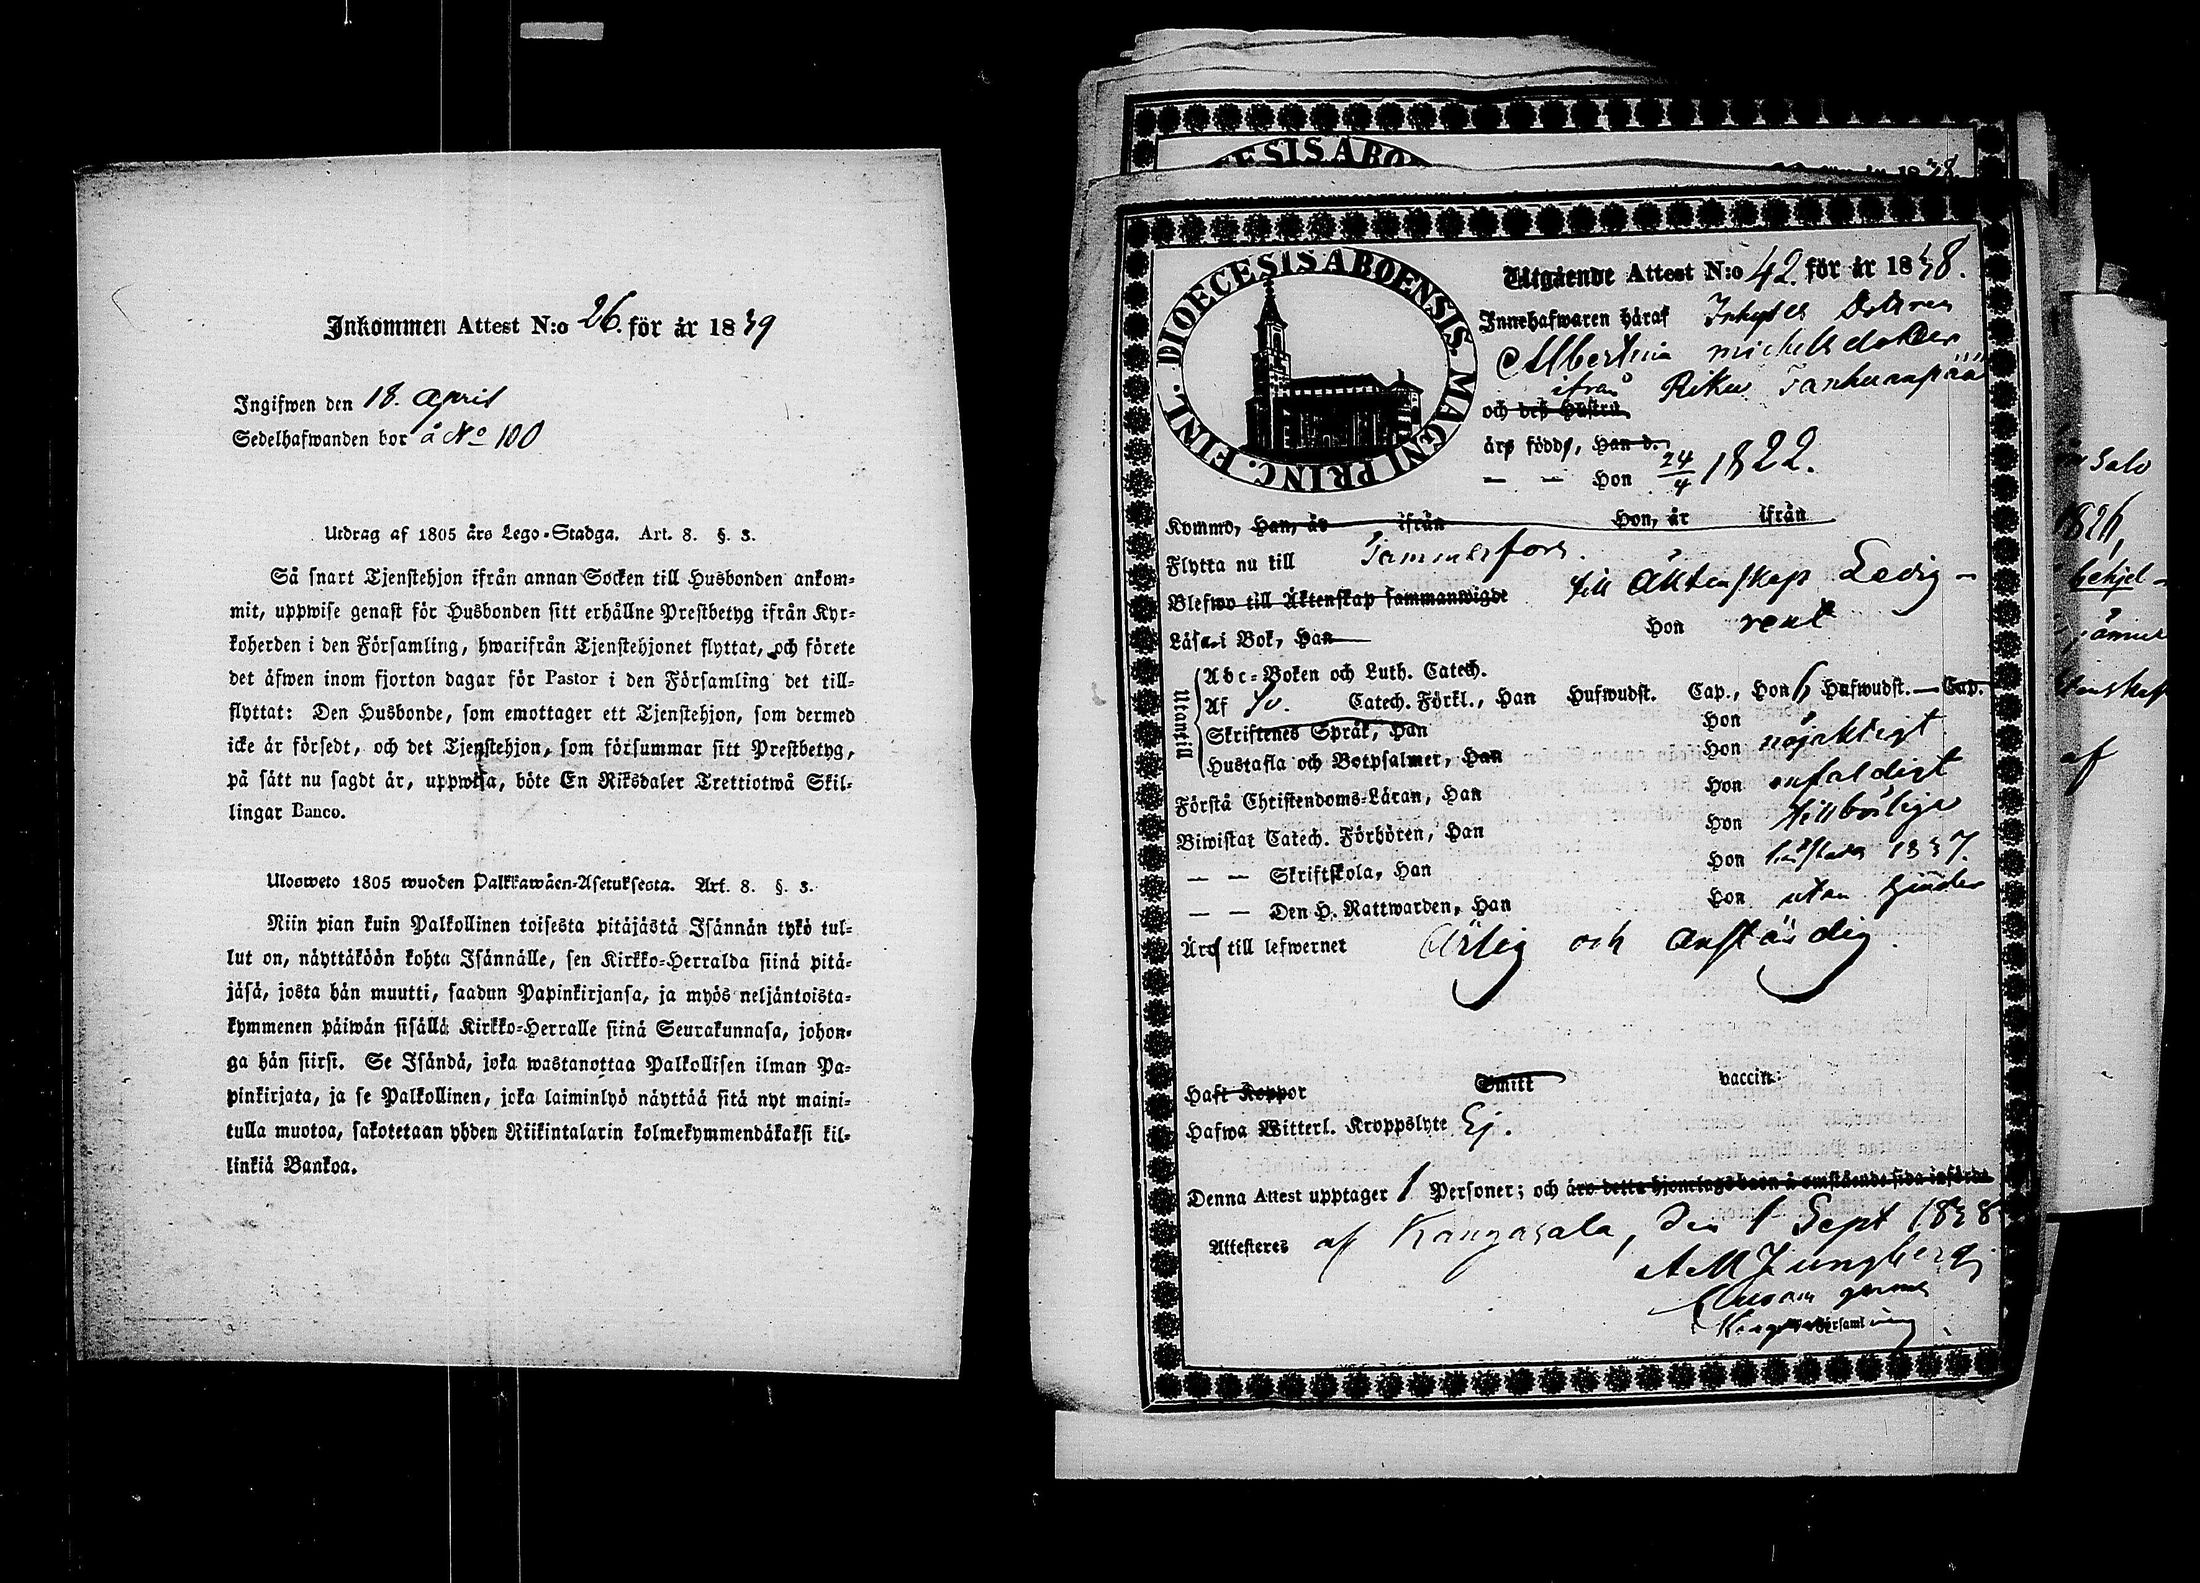 Inkommen Attest N:o 26. för år 1839
Ingifwen den 18. April
Sedelhafwanden bor å No 100
Utdrag af 1805 års Lego-Stadga. Art. 8. §. 3.
Så snart Tjenstehjon ifrån annan Socken till Husbonden ankom-
mit, uppwise genast för Husbonden sitt erhållne Prestbetyg ifrån Kyr-
koherden i den Församling, hwarifrån Tjenstehjonet flyttat, och förete
det äfwen inom fjorton dagar för Pastor i den Församling det till-
flyttat: Den Husbonde, som emottager ett Tjenstehjon, som dermed
icke är försedt, och det Tjenstehjon, som försummar sitt Prestbetyg,
på sätt nu sagdt är, uppwisa, böte En Riksdaler Trettiotwå Skil-
lingar Banco.
Ulosweto 1805 wuoden Palkkawäen-Asetuksesta. Art. 8. §. 3.
Niin pian kuin Palkollinen toisesta pitäjästä Isännän tykö tul-
lut on, näyttäköön kohta Isännälle, sen Kirkko-Herralda siinä pitä-
jäsä, josta hän muutti, saadun Papinkirjansa, ja myös neljäntoista-
kymmenen päiwän sisällä Kirkko-Herralle siinä Seurakunnasa, johon-
ga hän siirsi. Se Isändä, joka wastanottaa Palkollisen ilman Pa-
pinkirjata, ja se Palkollinen, joka laiminlyö näyttää sitä nyt maini-
tulla muotoa, sakotetaan yhden Riikintalarin kolmekymmendäkaksi kil-
linkiä Bankoa.
DIOECESIS ABO
DIOECESIS ABOENSIS. MAGNI PRINC. FINL.
Utgående Attest N:o 42. för år 1838.
Innehafwaren häraf Inhyses Dottren
Albertina Michelsdotter
ifrån Riku Tanhuanpää
och deß Hustru
äro födde, Han d.
— — Hon 24/4 1822.
Kommo, Han, år ifrån Hon, år ifrån
Flytta nu till Tammerfors.
Blefwo till Äktenskap sammanwigde till Äktenskap Ledig
Läsa i Bok, Han Hon rent
Utantill
Abc-Boken och Luth. Catech.
Af Catech. Förkl., Han Hufwudst. Cap., Hon 6 Hufwudst. — Cap.
Skriftenes Språk, Han Hon
Hustafla och Botpsalmer, Han Hon nöjaktigt
Förstå Christendoms-Läran, Han Hon enfaldigt
Biwistat Catech. Förhören, Han Hon
— — Skriftskola, Han Hon 1837.
— — Den H. Nattwarden, Han Hon utan hinder
Äro till lefwernet Ärlig och anständig.
Haft Koppor Smitt vaccin:
Hafwa Witterl. Kroppslyte Ej.
Denna Attest upptager 1 Personer; och äro detta hjonelags barn å omstående sida införde
Attesteres af Kangasala, den 1 Sept 1838
A M Ljungberg
församling
1826,
af